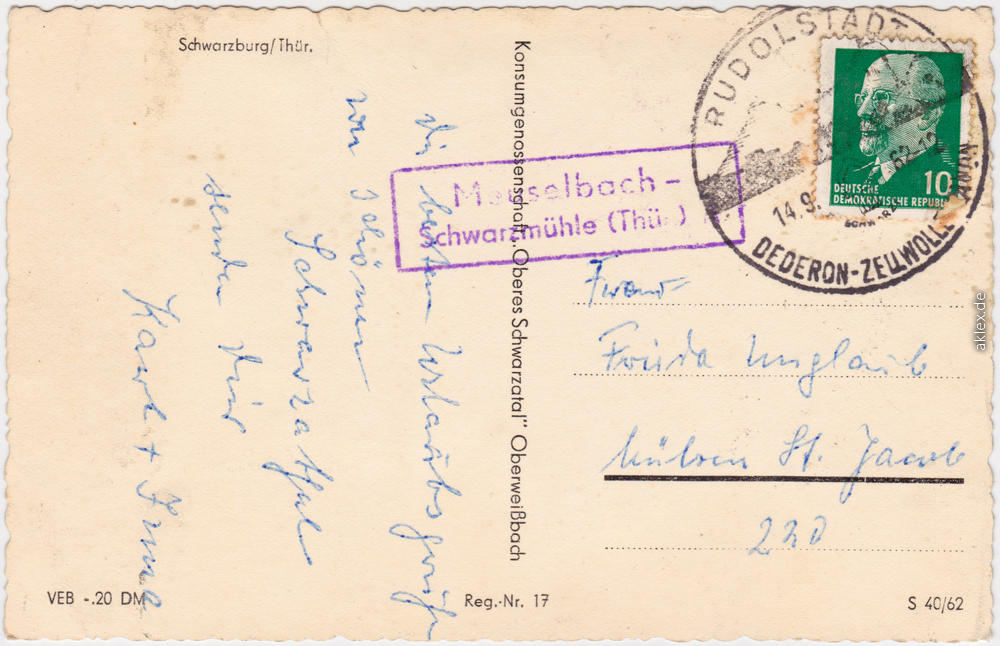 Schwarzburg/Thür.
Die besten Urlaubsgrüße
vom schönen
Schwarzathal
senden Dir
Karl + Irma
Konsumgenossenschaft „Oberes Schwarzatal" Oberweißbach
Meuselbach-
Schwarzmühle (Thür.)
RUDOLSTADT
14.9.
62-12
DEDERON-ZELLWOLLE
10
DEUTSCHE
DEMOKRATISCHE REPUBLIK
Frau
Frieda Unglaub
Mülsen St. Jacob
220
VEB -.20 DM
Reg.-Nr. 17
S 40/62
aklex.de